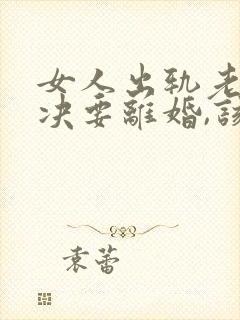 女人出轨老
决要離婚,該
袁蕾